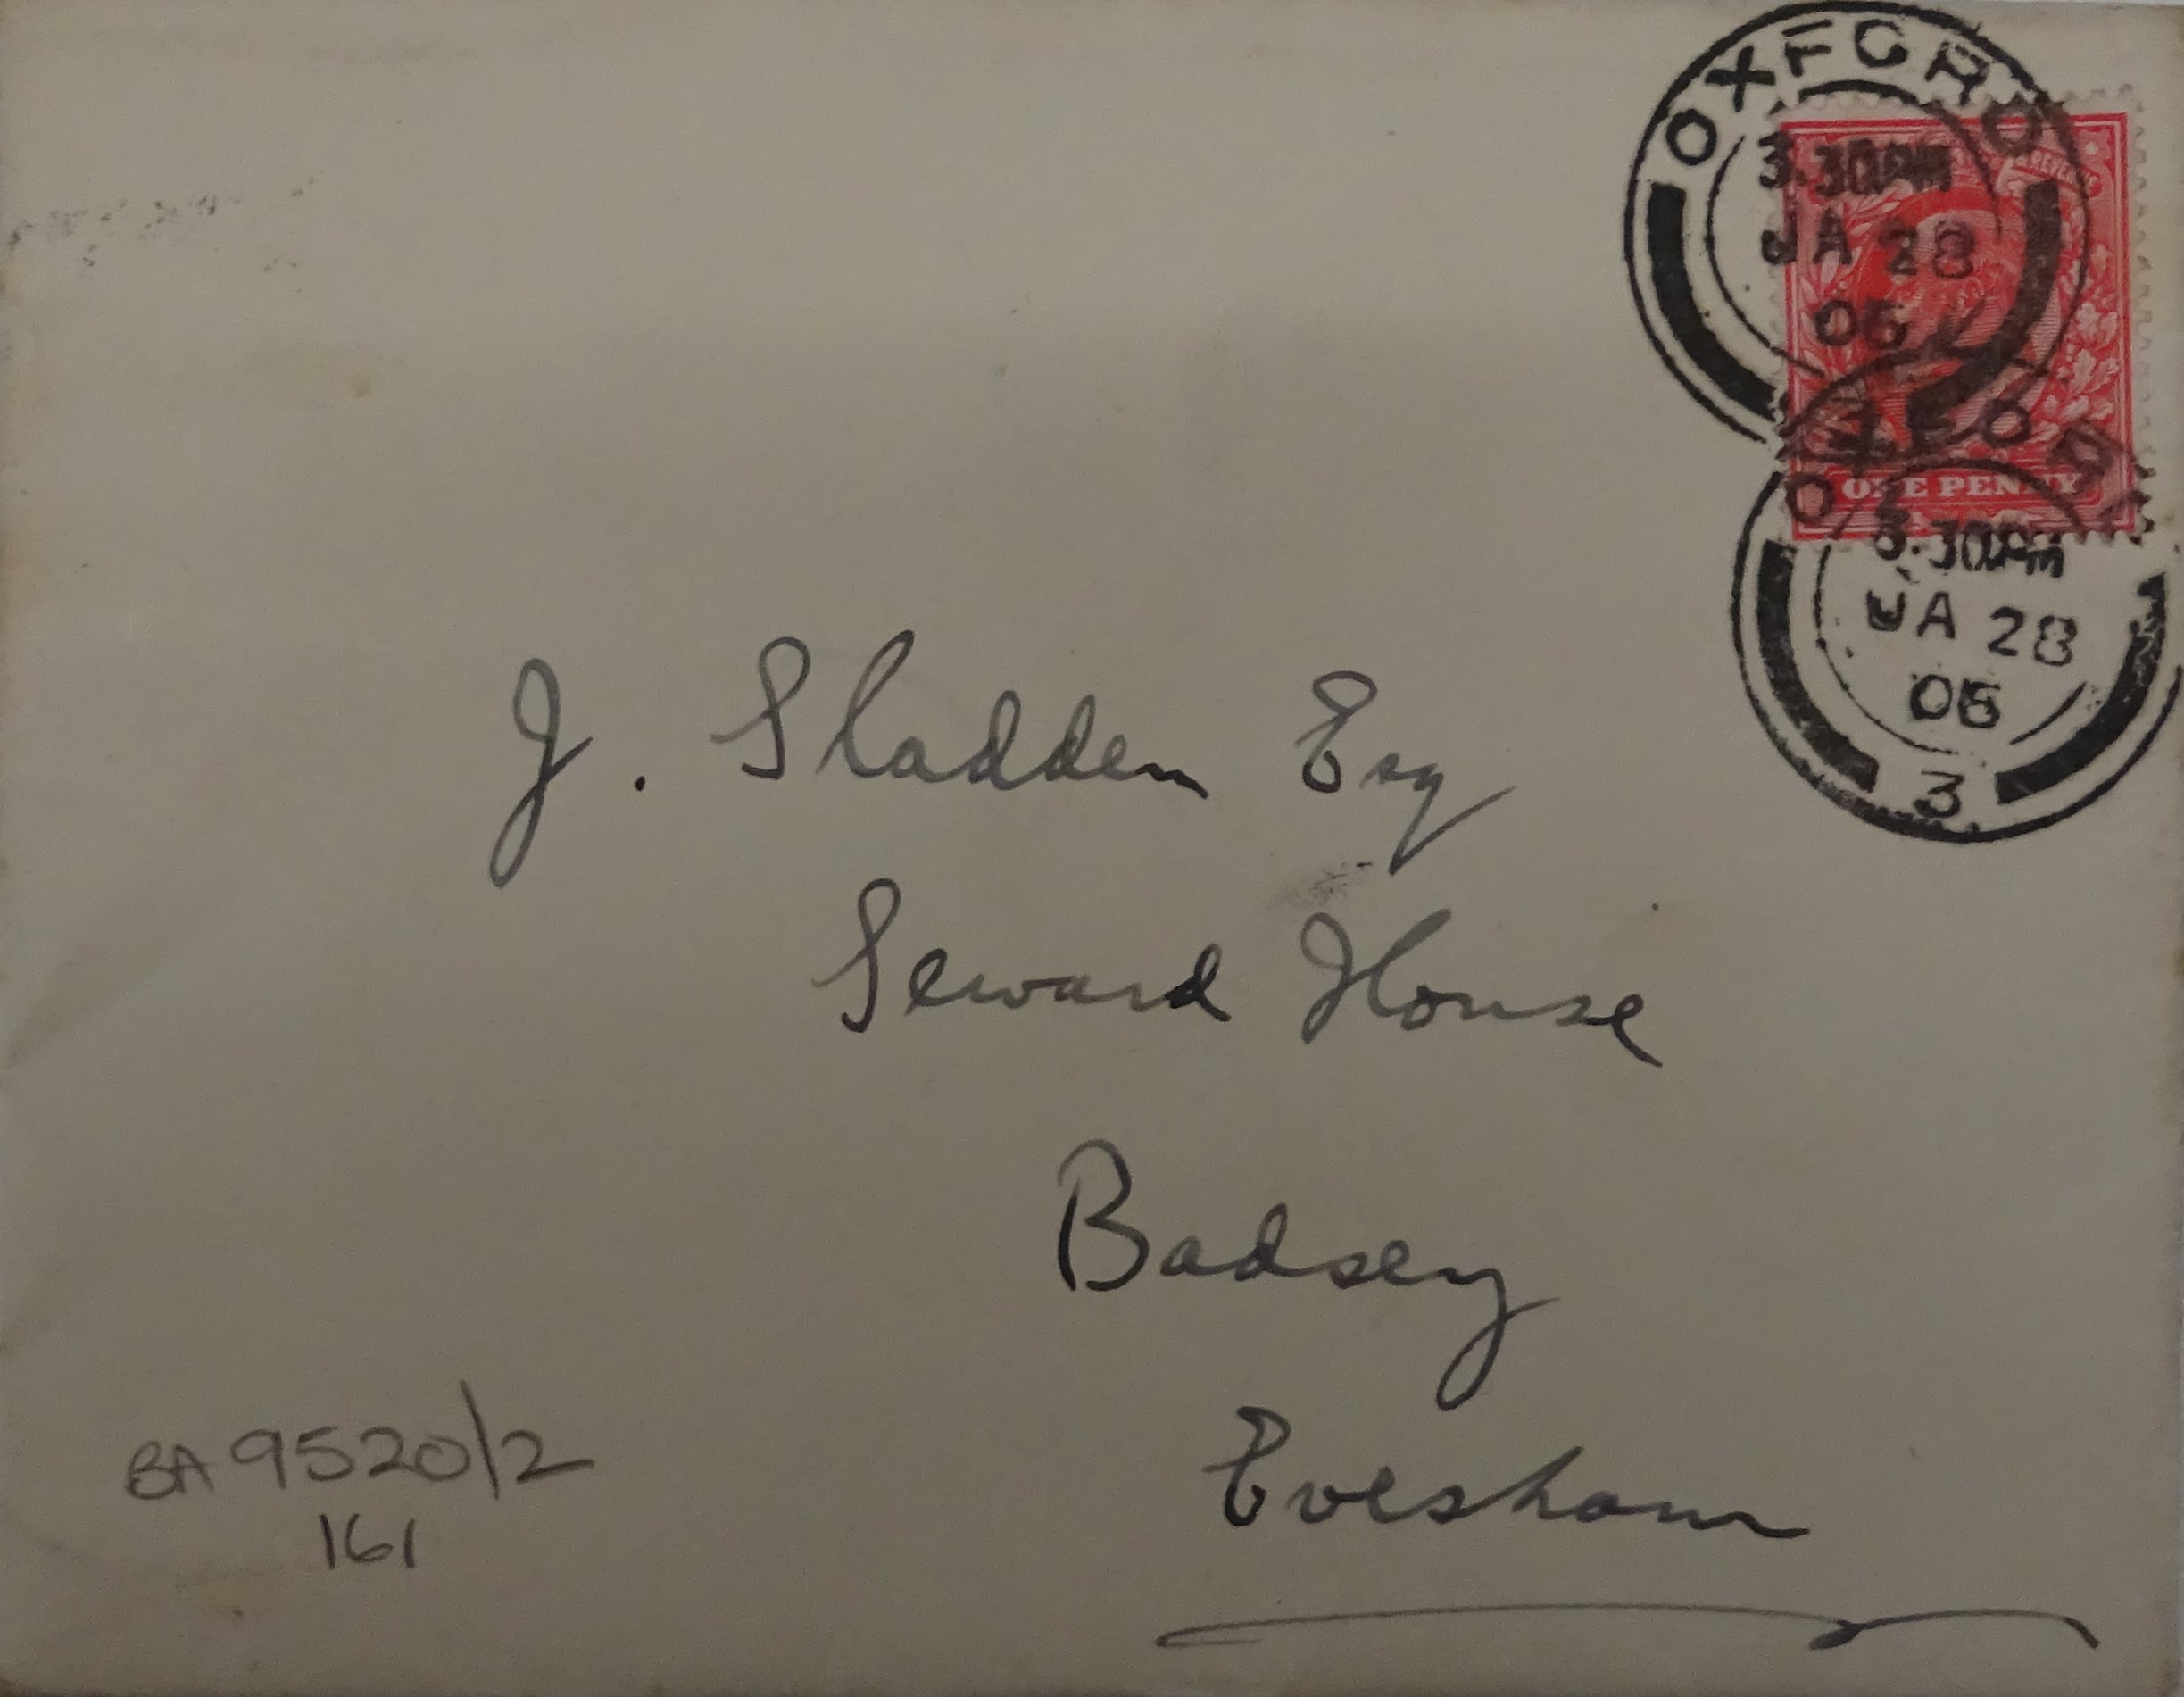 OXFORD
3.30PM
JA 28
06
ONE PENNY
OXFOR
3.30PM
JA 28
06
3
J. Sladden Esq
Seward House
Badsey
Evesham
BA 9520/2
161